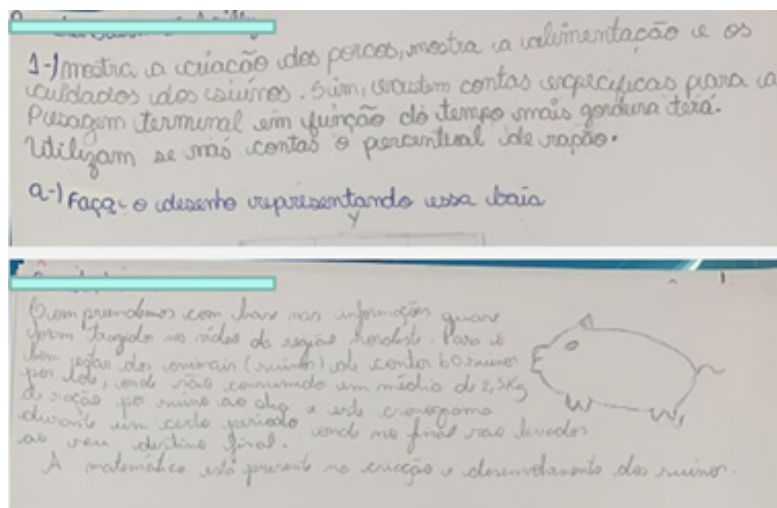 1-) mostra a criação dos porcos, mostra a alimentação e os
cuidados dos suínos. Sim, existem contas especificas para a
Pesagem terminal em função do tempo mais gordura terá.
Utilizam se nas contas o percentual de ração.
a-) Faça o desenho representando essa baia
Y
Compreendemos com base nas informações quare
foram tragidos no vídeo da região Nordeste. Para o
bem estar dos animais (suinos) de conter 60 suinos
por lote, onde são consumido em média de 2,5Kg
de ração por suino ao dia e este cronograma
durante um certo periodo onde no final sao levados
ao seu destino final.
A matemática está presente na criação e desenvolvimento dos suinos.